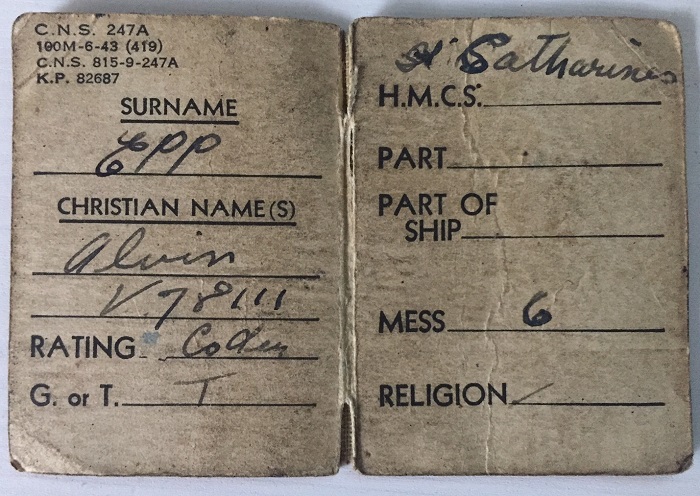 C.N.S. 247A
100M-6-43 (419)
C.N.S. 815-9-247A
K.P. 82687
SURNAME
Epp
CHRISTIAN NAME(S)
Alvin
V.78111
RATING Coder
G. or T. T
St Catharines
H.M.C.S.
PART
PART OF
SHIP
MESS 6
RELIGION